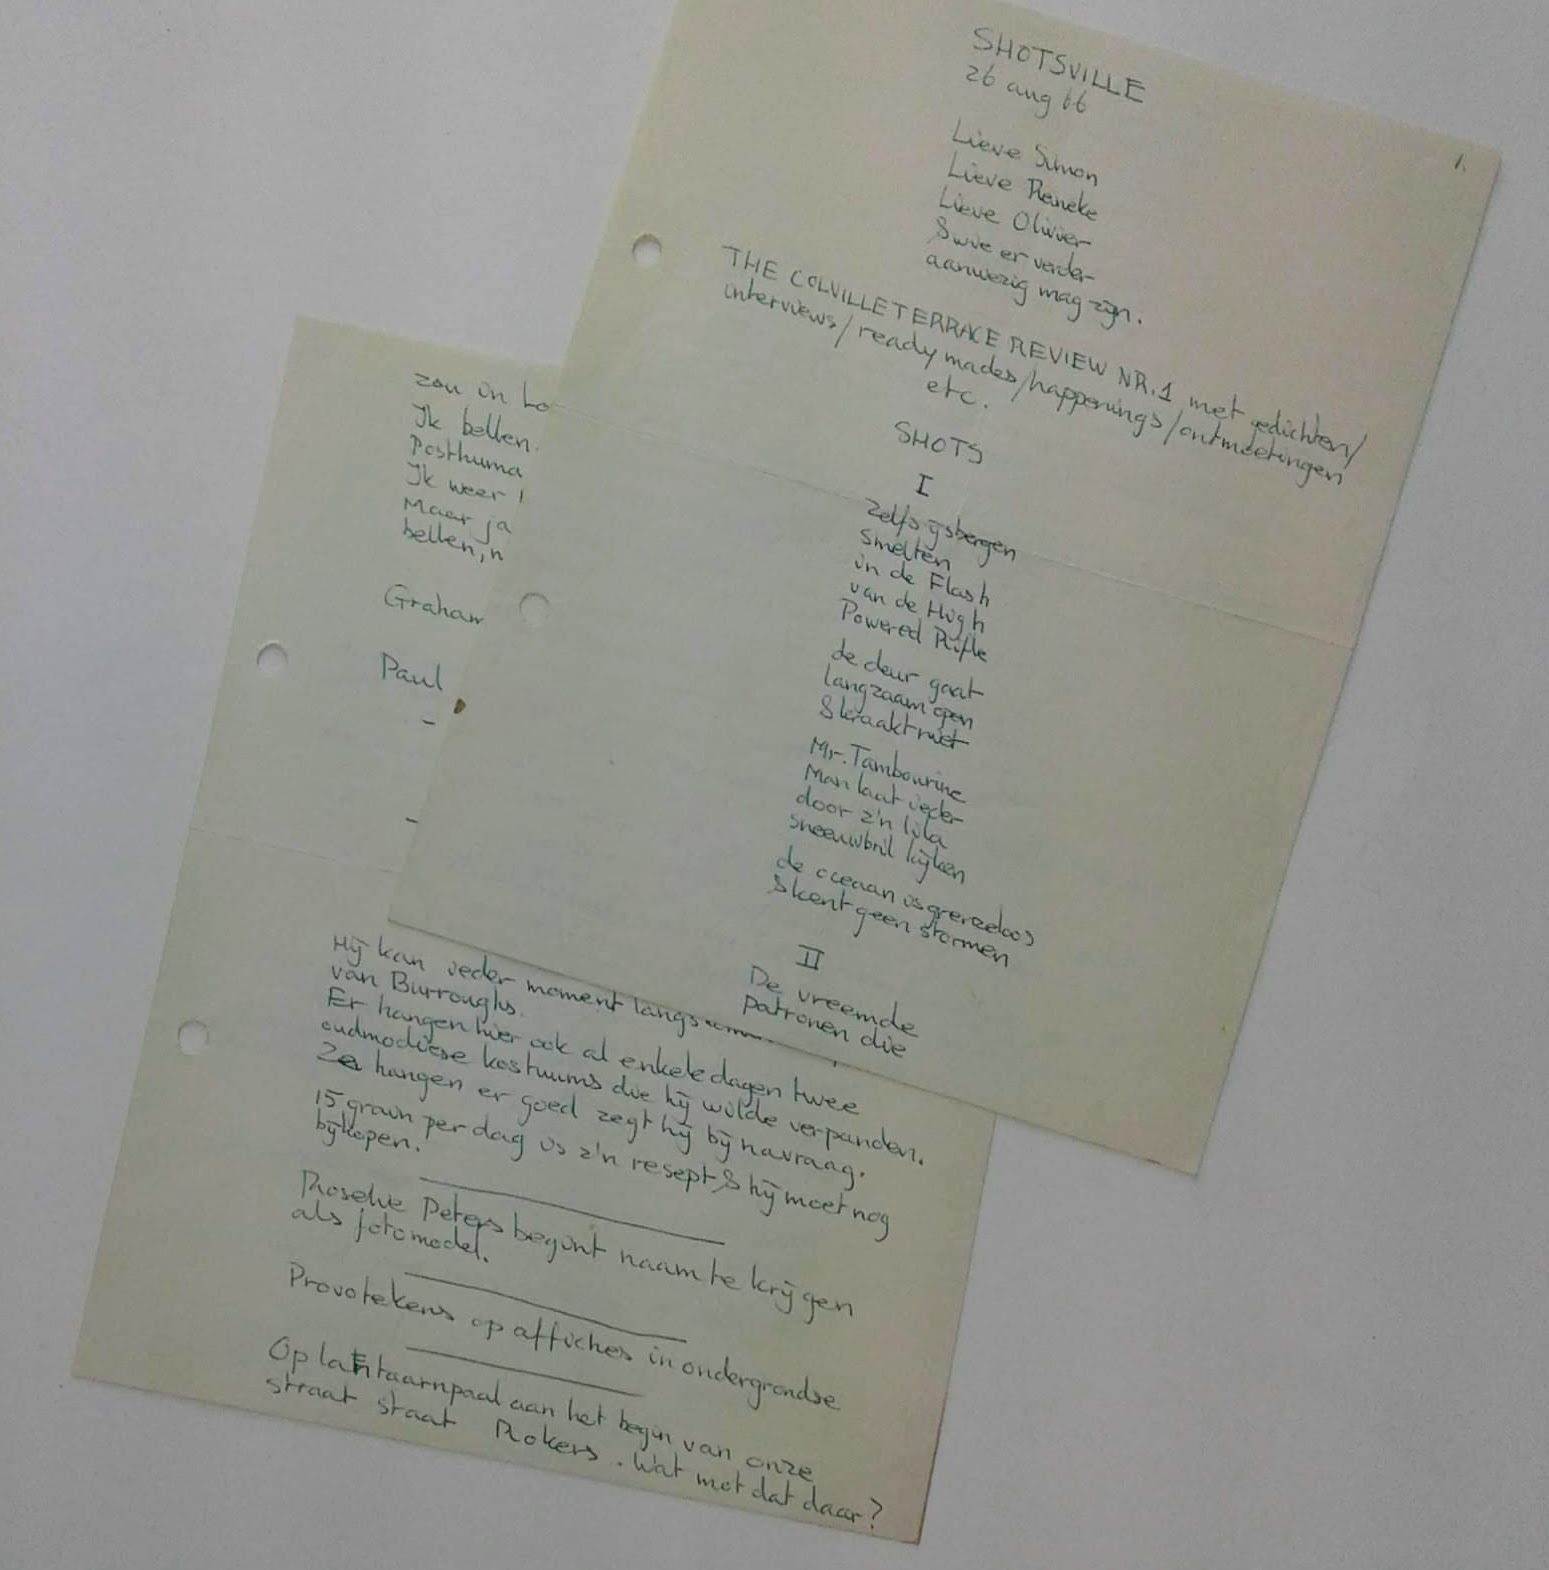 SHOTSVILLE
26 aug 66
1.
Lieve Simon
Lieve Reneke
Lieve Olivier
& wie er verder
aanwezig mag zijn.
THE COLVILLE TERRACE REVIEW NR.1 met gedichten/
interviews/ready mades/happenings/ontmoetingen
etc.
SHOTS
I
Zelfs ijsbergen
smelten
in de Flash
van de High
Powered Rifle
de deur gaat
langzaam open
& kraakt niet
Mr. Tambourine
Man laat ieder
door z'n lila
sneeuwbril kijken
de oceaan is grenzeloos
& kent geen stormen
II
De vreemde
patronen die
zou in Lo
Ik bellen.
Posthuma
Ik weer
Maar ja
bellen, n
Graham
Paul
-
-
Hij kan ieder moment langs
van Burroughs.
Er hangen hier ook al enkele dagen twee
oudmodiese kostuums die hij wilde verpanden.
Ze hangen er goed zegt hij bij navraag.
15 grain per dag is z'n resept & hij moet nog
bijkopen.
Roselie Peters begint naam te krijgen
als fotomodel.
Provotekens op affiches in ondergrondse
Op lantaarnpaal aan het begin van onze
straat staat Rokers. Wat mot dat daar?